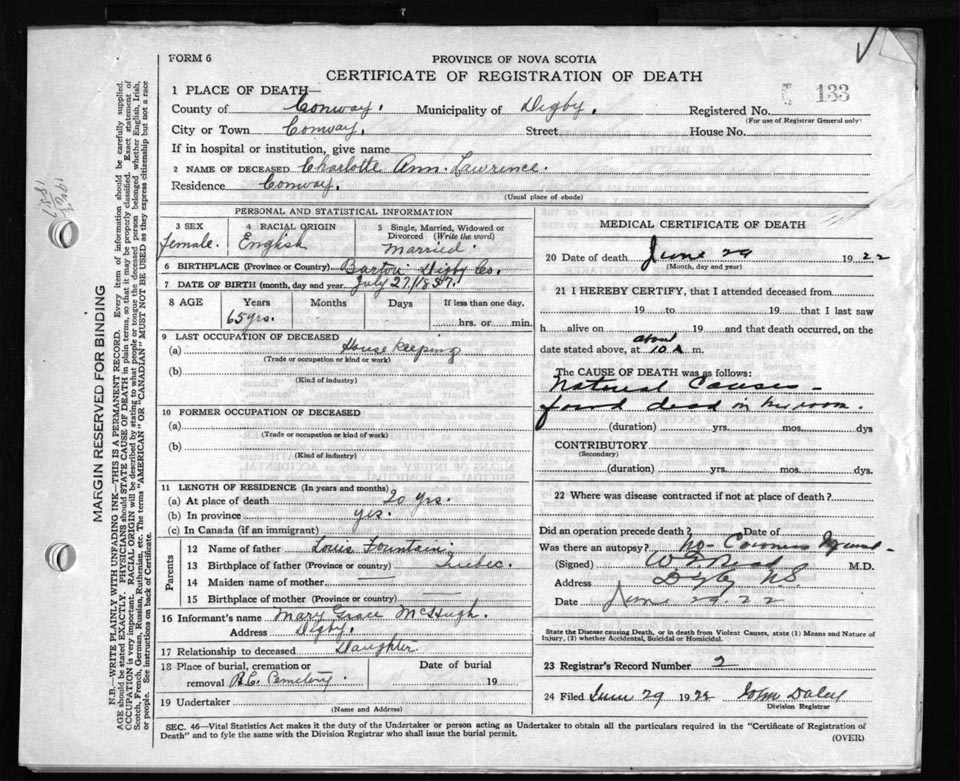 FORM 6
PROVINCE OF NOVA SCOTIA
CERTIFICATE OF REGISTRATION OF DEATH
1 PLACE OF DEATH—
County of Conway. Municipality of Digby. Registered No. 133
(For use of Registrar General only)
City or Town Conway. Street House No.
If in hospital or institution, give name
2 NAME OF DECEASED Charlotte Ann Lawrence.
Residence Conway.
(Usual place of abode)
PERSONAL AND STATISTICAL INFORMATION
3 SEX 4 RACIAL ORIGIN 5 Single, Married, Widowed or Divorced (Write the word)
Female. English Married.
6 BIRTHPLACE (Province or Country) Barton Digby Co.
7 DATE OF BIRTH (month, day and year) July 27/1857.
8 AGE Years Months Days If less than one day,
65 yrs. hrs. or min.
9 LAST OCCUPATION OF DECEASED
(a) House Keeping
(Trade or occupation or kind or work)
(b)
(Kind of industry)
10 FORMER OCCUPATION OF DECEASED
(a)
(Trade or occupation or kind of work)
(b)
(Kind of industry)
11 LENGTH OF RESIDENCE (In years and months)
(a) At place of death 20 yrs.
(b) In province yes.
(c) In Canada (if an immigrant)
Parents
12 Name of father Louis Fountain
13 Birthplace of father (Province or country) Quebec.
14 Maiden name of mother —
15 Birthplace of mother (Province or country) —
16 Informant's name Mary Grace McHugh.
Address Digby.
17 Relationship to deceased Daughter
18 Place of burial, cremation or removal R.C. Cemetery Date of burial 19
19 Undertaker
(Name and Address)
MEDICAL CERTIFICATE OF DEATH
20 Date of death June 29 1922
(Month, day and year)
21 I HEREBY CERTIFY, that I attended deceased from
19 to 19 that I last saw
h alive on 19 and that death occurred, on the
date stated above, at about 10 A m.
The CAUSE OF DEATH was as follows:
Natural Causes –
found dead in her room.
(duration) yrs. mos. dys
CONTRIBUTORY
(Secondary)
(duration) yrs. mos. dys.
22 Where was disease contracted if not at place of death?
Did an operation precede death? Date of
Was there an autopsy? No – Coroners
(Signed) M.D.
Address Digby N.S.
Date June 29 22
State the Disease causing Death, or in death from Violent Causes, state (1) Means and Nature of
Injury, (2) whether Accidental, Suicidal or Homicidal.
23 Registrar's Record Number 2
24 Filed June 29 1922 John Daley
Division Registrar
SEC. 46—Vital Statistics Act makes it the duty of the Undertaker or person acting as Undertaker to obtain all the particulars required in the "Certificate of Registration of
Death" and to fyle the same with the Division Registrar who shall issue the burial permit.
(OVER)
MARGIN RESERVED FOR BINDING
N.B.—WRITE PLAINLY WITH UNFADING INK—THIS IS A PERMANENT RECORD. Every item of information should be carefully supplied.
AGE should be stated EXACTLY. PHYSICIANS should STATE CAUSE OF DEATH in plain terms, so that it may be properly classified. Exact statement of
OCCUPATION is very important. RACIAL ORIGIN will be described by stating to what people or tongue the deceased person belonged whether English, Irish,
Scotch, French, German, Russian, Ruthenian, etc. The terms "AMERICAN" OR "CANADIAN" MUST NOT BE USED as they express citizenship but not a race
or people. See instructions on back of Certificate.
1922
1857